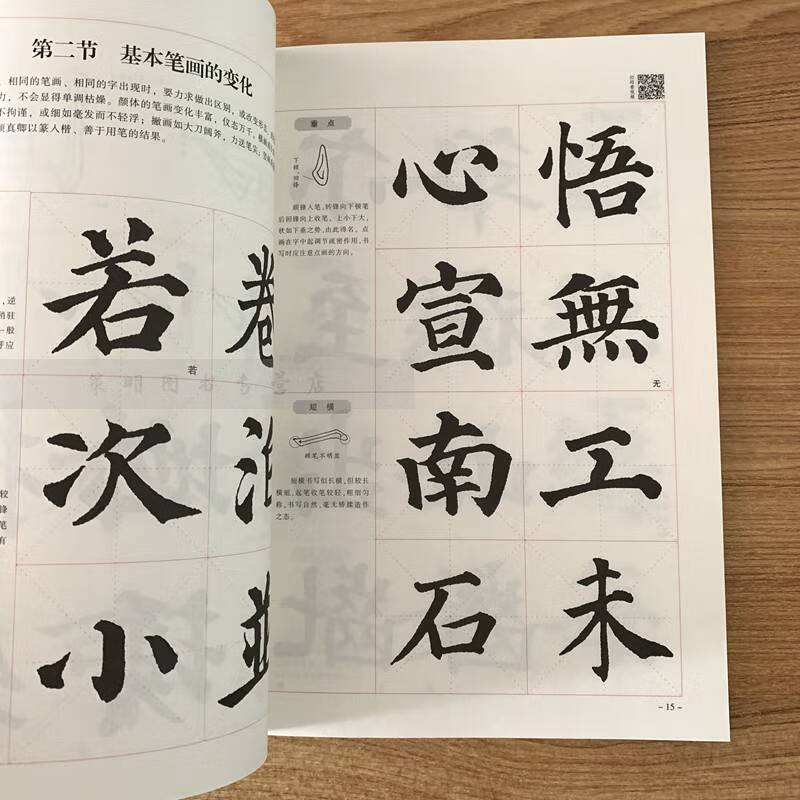 第二节 基本笔画的变化
相同的笔画、相同的字出现时，要力求做出区别，或改变形
力，不会显得单调枯燥。颜体的笔画变化丰富，仪态万千。
不拘谨，或细如毫发而不轻浮；撇画如大刀阔斧，力送笔尖；
颜真卿以篆入楷、善于用笔的结果。
逆
稍驻
一般
呼应
若 卷
若
次
较
锋
笔
有
小 並
策明图书专营店
扫码看视频
垂点
下顿，回锋
顺锋入笔，转锋向下顿笔
后回锋向上收笔。上小下大，
状如下垂之势，由此得名。点
画在字中起调节疏密作用，书
写时应注意点画的方向。
心 悟
宣 無
无
短横
顿笔不明显
短横书写似长横，但较长
横粗，起笔收笔较轻，粗细匀
称，书写自然，毫无矫揉造作
之态。
南 工
石 未
- 15 -